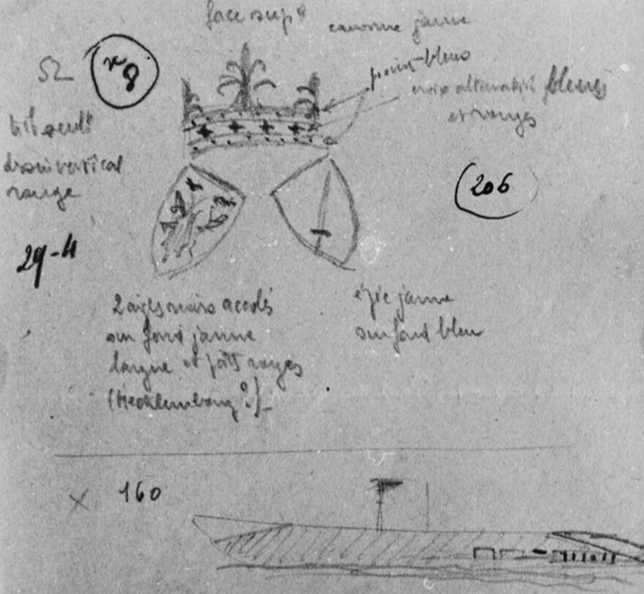 face sup
52 n 8
couronne jaune
points bleus
croix alternativ bleues
et rouges
vertical
rouge
206
29-4
2 aigles noirs accolés
sur fond jaune
langue et patt rouges
(Mecklembourg?)
épée jaune
sur fond bleu
x 160